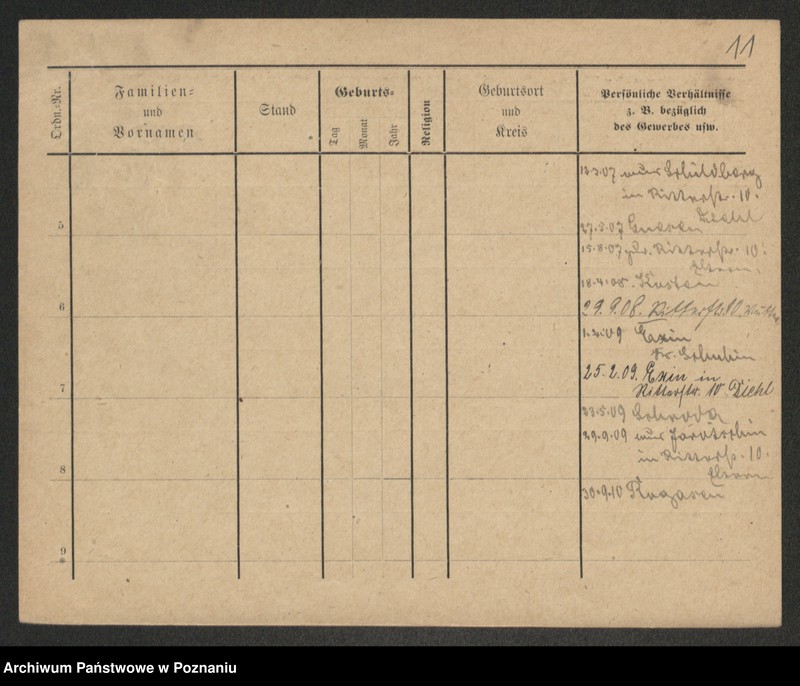 11
Ordn.=Nr.
Familien=
und
Vornamen
Stand
Geburts=
Tag
Monat
Jahr
Religion
Geburtsort
und
Kreis
Persönliche Verhältnisse
z. B. bezüglich
des Gewerbes usw.
13.3.07 aus Schildberg
in Ritterstr. 10.
Diehl
5
27.5.07 Gnesen
15.8.07 zur. Ritterstr. 10.
Eltern.
18.4.08. Kosten
6
29.9.08. Ritterstr. 10
1.2.09 Exin
Kr. Schubin
7
25.2.09. Exin in
Ritterstr. 10 Diehl
23.5.09 Schroda
29.9.09 aus Jarotschin
in Ritterstr. 10.
8
Eltern
30.9.10 Rogasen
9
Archiwum Państwowe w Poznaniu